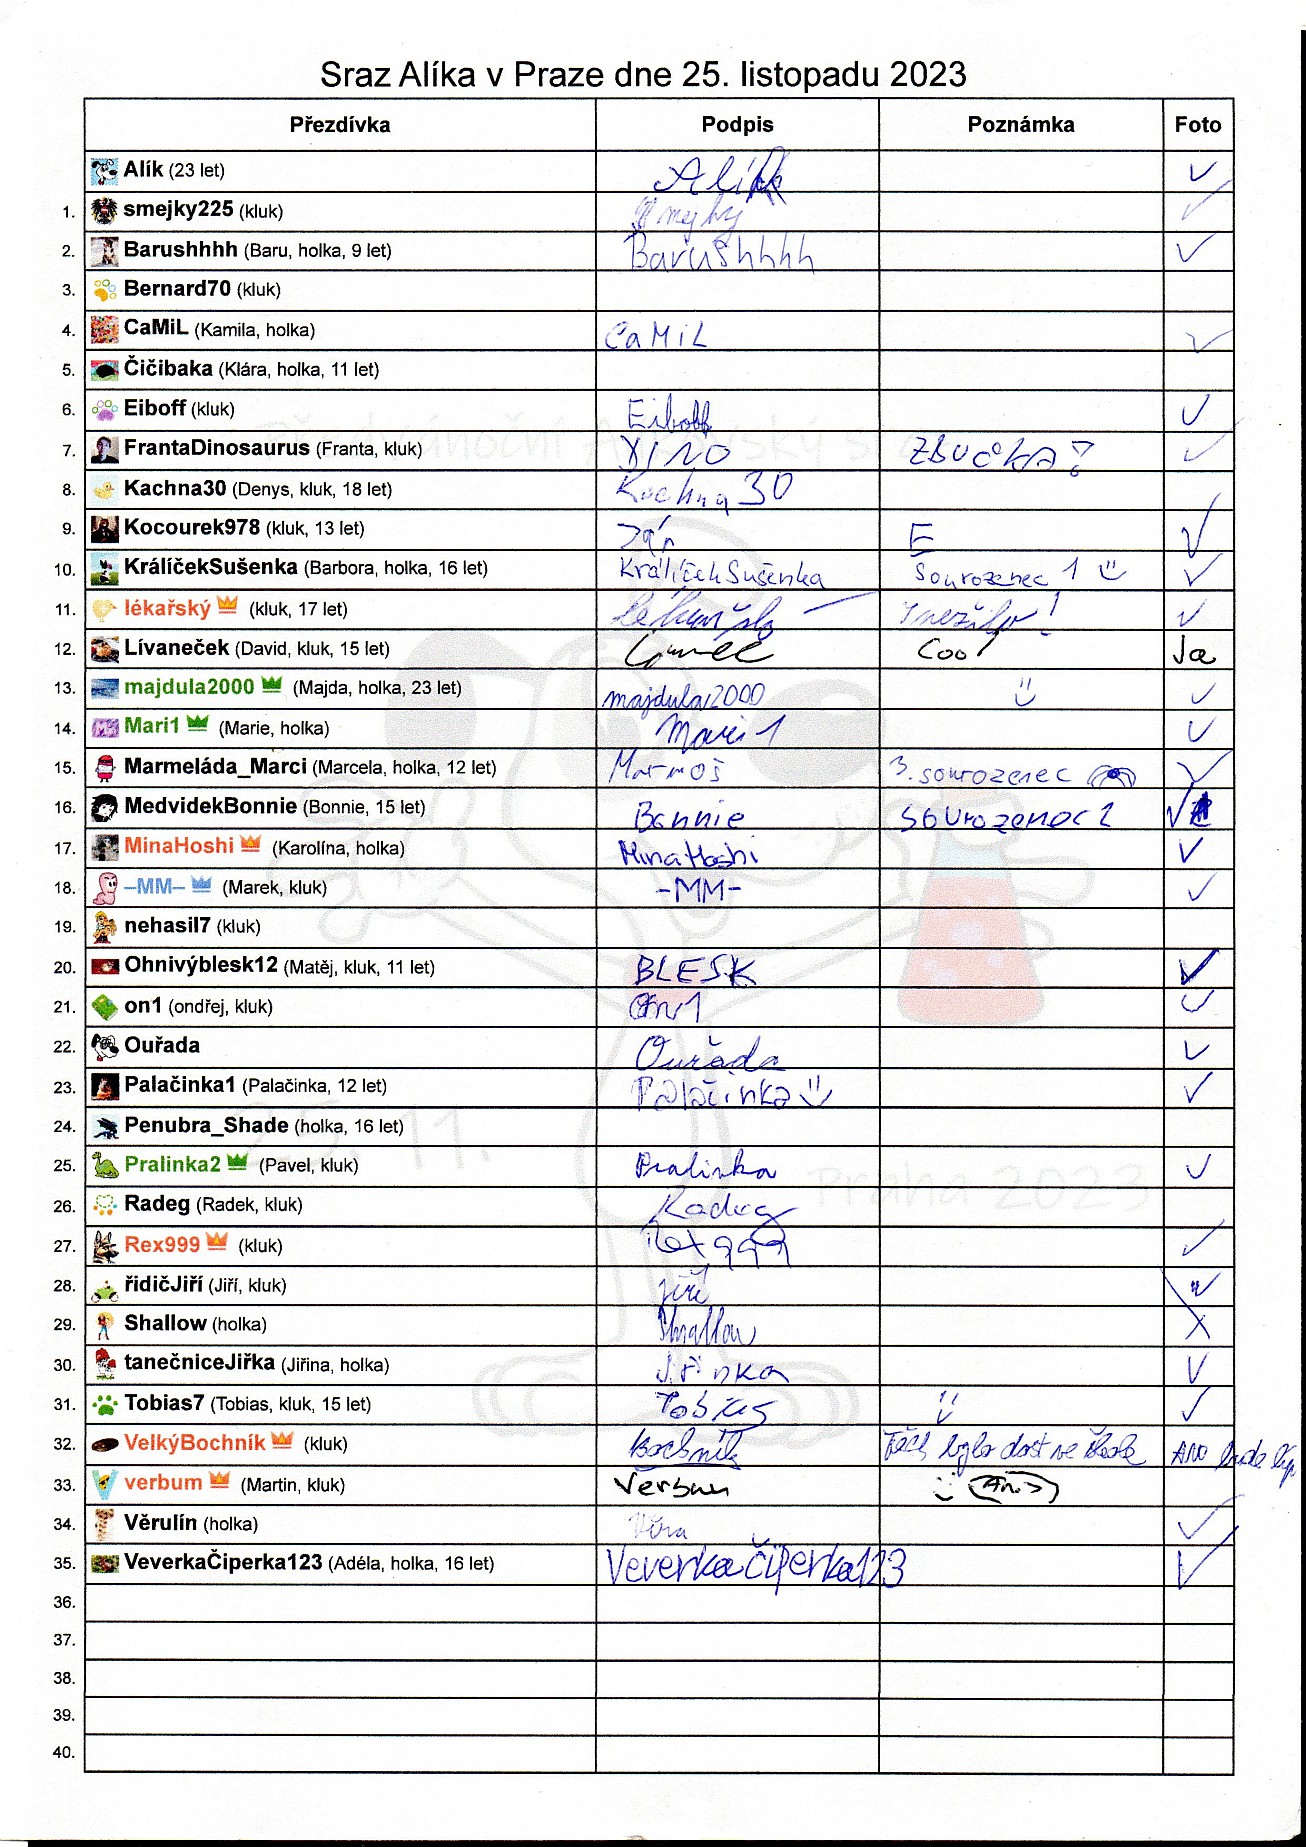 Sraz Alíka v Praze dne 25. listopadu 2023
Přezdívka Podpis Poznámka Foto
Alík (23 let) Alík
1. smejky225 (kluk) smejky
2. Barushhhh (Baru, holka, 9 let) Barushhhh
3. Bernard70 (kluk)
4. CaMiL (Kamila, holka) CaMiL
5. Čičibaka (Klára, holka, 11 let)
6. Eiboff (kluk) Eiboff
7. FrantaDinosaurus (Franta, kluk)
8. Kachna30 (Denys, kluk, 18 let) Kachna 30
9. Kocourek978 (kluk, 13 let) E
10. KrálíčekSušenka (Barbora, holka, 16 let) KrálíčekSušenka Sourozenec 1
11. lékařský (kluk, 17 let)
12. Lívaneček (David, kluk, 15 let) Cool Ja
13. majdula2000 (Majda, holka, 23 let) majdula2000
14. Mari1 (Marie, holka) Mari1
15. Marmeláda_Marci (Marcela, holka, 12 let) Marmoš 3. sourozenec
16. MedvidekBonnie (Bonnie, 15 let) Bonnie Sourozenec 2
17. MinaHoshi (Karolína, holka) MinaHoshi
18. –MM– (Marek, kluk) -MM-
19. nehasil7 (kluk)
20. Ohnivýblesk12 (Matěj, kluk, 11 let) BLESK
21. on1 (ondřej, kluk) on1
22. Ouřada Ouřada
23. Palačinka1 (Palačinka, 12 let) Palačinka
24. Penubra_Shade (holka, 16 let)
25. Pralinka2 (Pavel, kluk) Pralinka
26. Radeg (Radek, kluk) Radeg
27. Rex999 (kluk) Rex999
28. řidičJiří (Jiří, kluk) Jiří
29. Shallow (holka) Shallow
30. tanečniceJiřka (Jiřina, holka) Jiřinka
31. Tobias7 (Tobias, kluk, 15 let) Tobias
32. VelkýBochník (kluk) Bochník Těch bylo dost ve škole ANO bude
33. verbum (Martin, kluk) Verbum
34. Věrulín (holka) Věra
35. VeverkaČiperka123 (Adéla, holka, 16 let) VeverkaČiperka123
36.
37.
38.
39.
40.
25.11.
Praha 2023